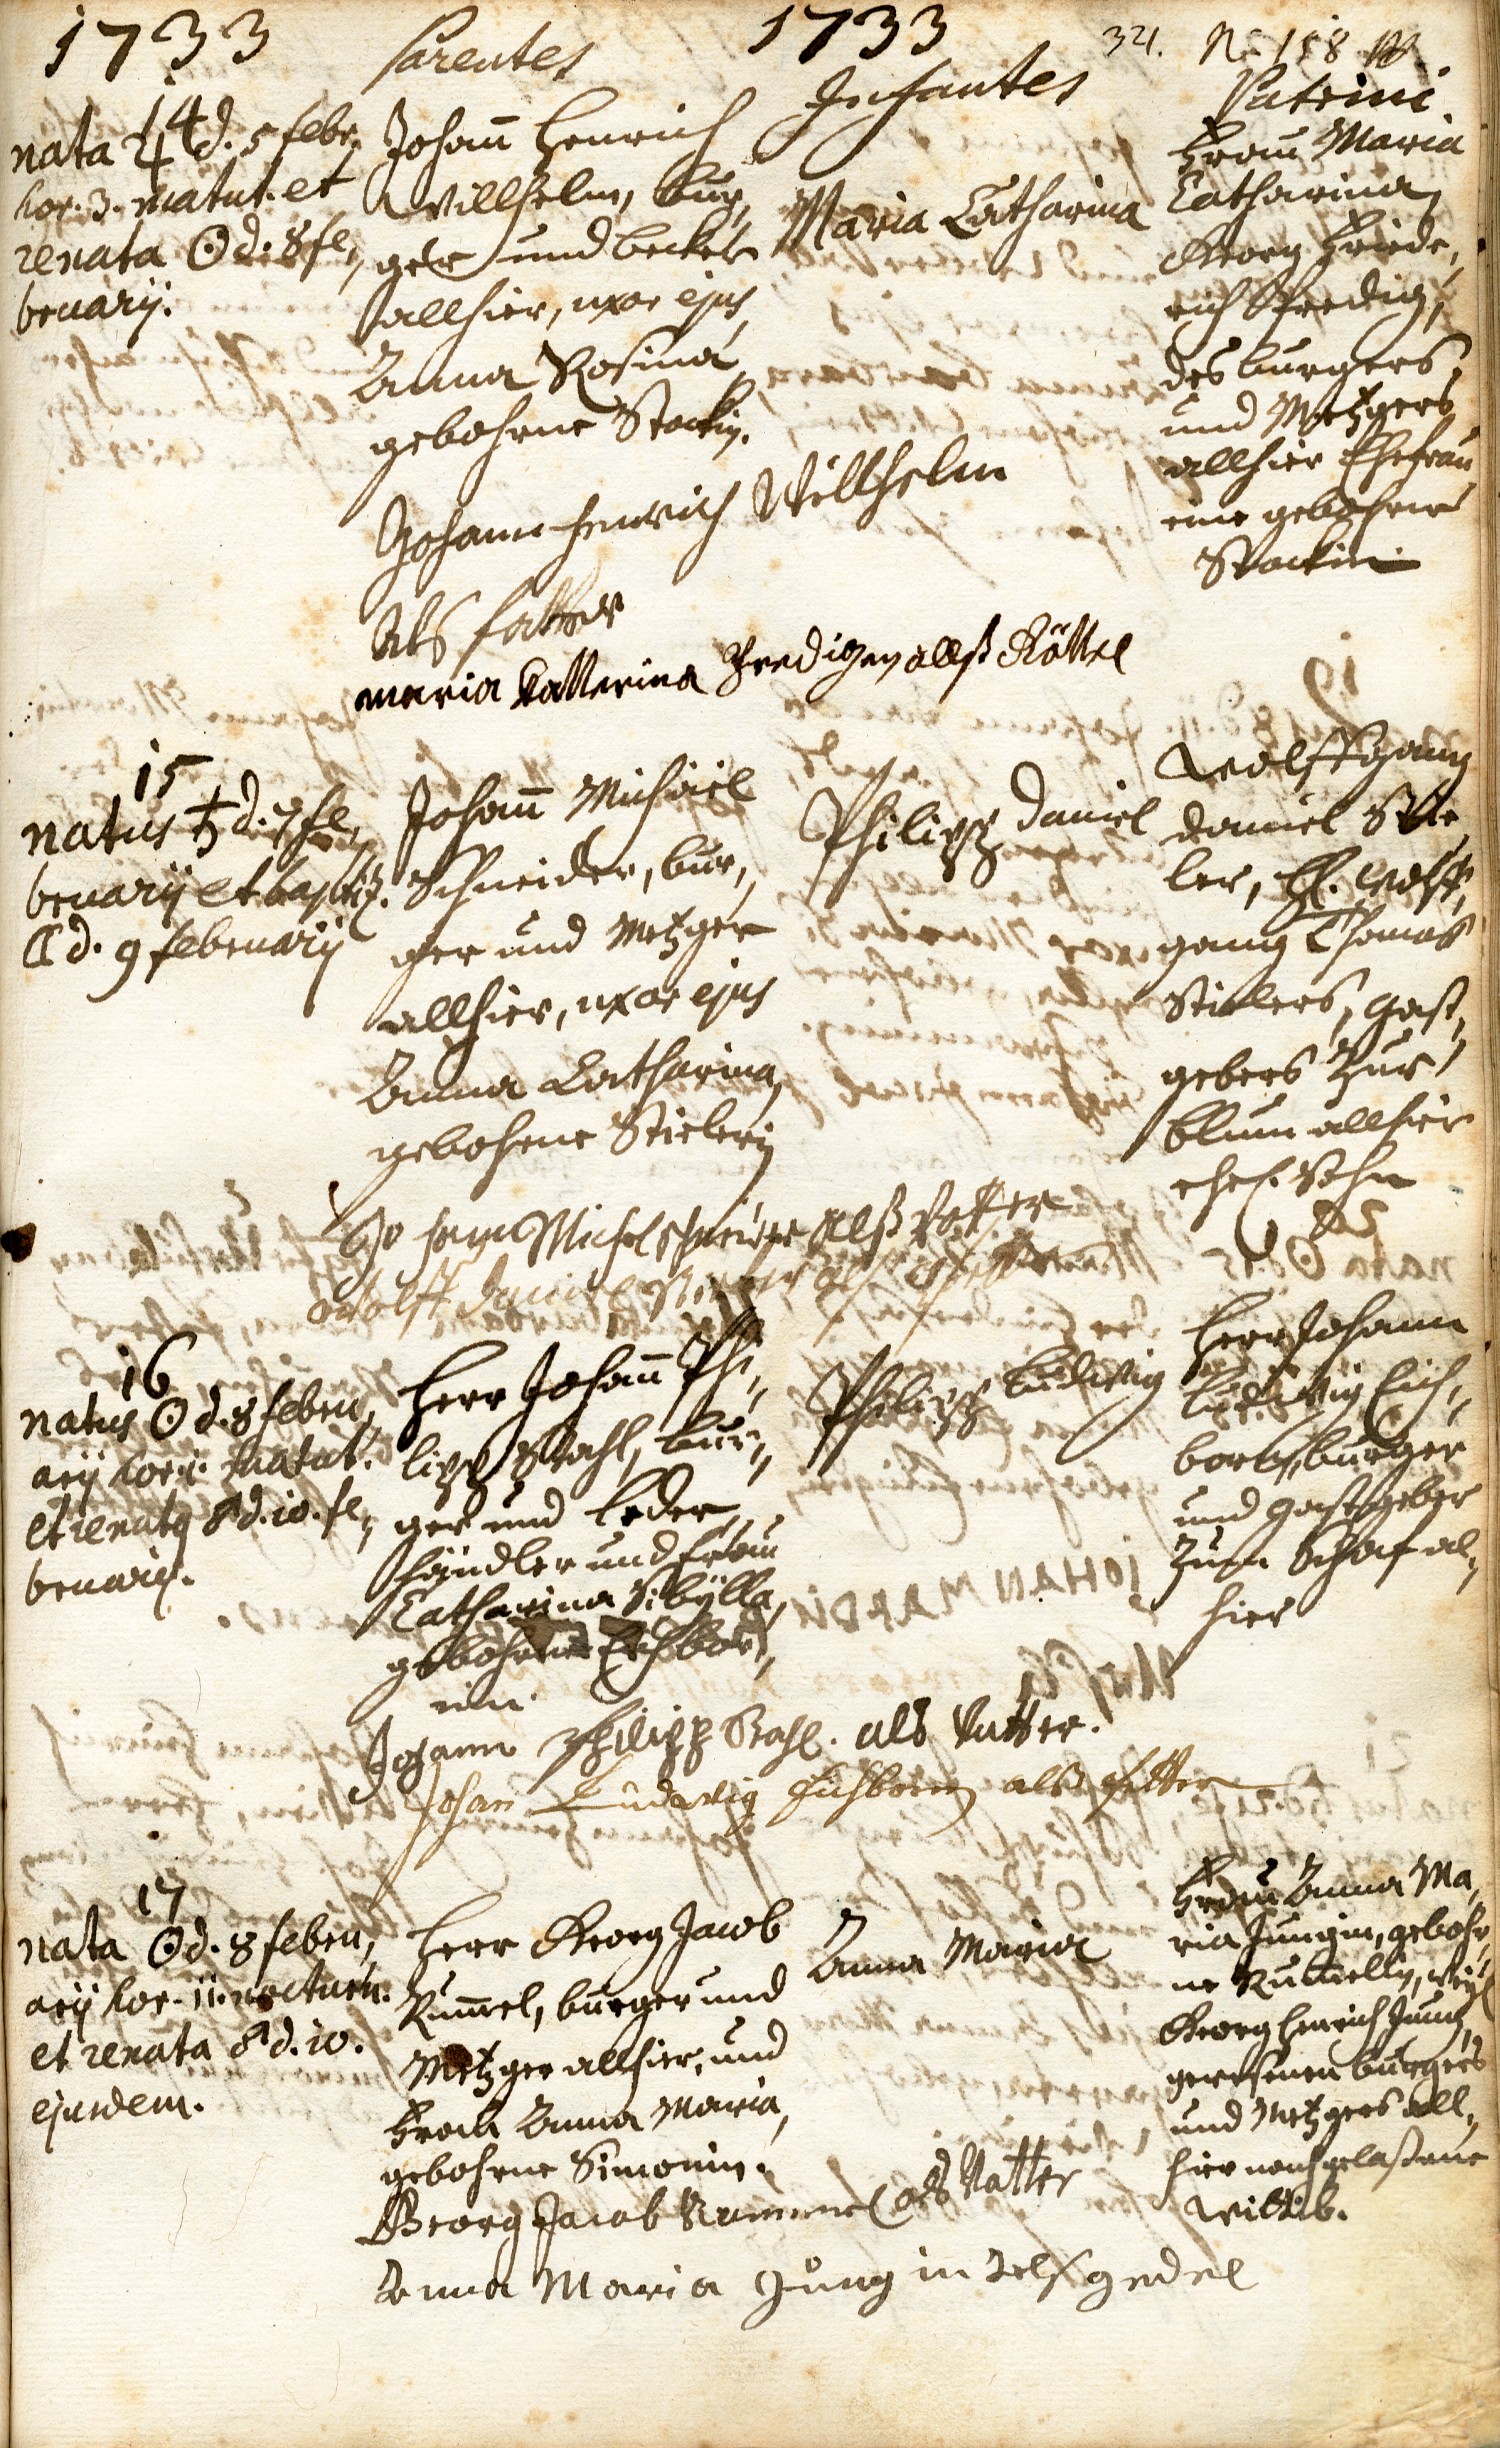 1733 Parentes 1733 321. N. 158
Infantes Patrini
14
nata ♃ d. 5 febr.
hor. 3. matut. et
renata ☉ d. 8 fe,,
bruarij.
Johañ Henrich
Willhelm, bur,,
ger und becker
allhier, uxor ejus
Anna Rosina,
gebohrne Stockin.
Maria Catharina
Frau Maria
Catharina,
Georg Friede,,
rich Predig,
des burgers
und Metzgers
allhier Ehefrau
eine gebohrne
Stockin
Johann Henrich Willhelm
als Vatter
maria Katterina Predigen allß Göttel
15
natus ♄ d. 7 fe,,
bruarij et baptiz.
☾ d. 9 februarij
Johañ Michael
Schneider, bur,,
ger und Metzger
allhier, uxor ejus
Anna Catharina,
gebohrne Stielerin
Philipp Daniel
Wolffgang
Daniel Stie
ler, H. Wolff,,
gang Thomas
Stielers, gast,,
gebers Zur
blum allhier
ehel. Sohn
Johann Michel Schneider alß Vatter
Wolff Daniel Stieler alß
16
natus ☉ d. 8 febru,,
arij hor. matut.
et renatq ♂ d. 10. fe,,
bruarij.
Herr Johañ Phi,,
lipp Stahl, bur,,
ger und Leder,,
händler und Frau
Catharina Sibÿlla,
gebohrne Eichbor,,
nin.
Philipp Ludwig
Herr Johann
Ludwig Eich,,
born, burger
und Gastgeber
Zum Schaf al,,
hier
Johann Philipp Stahl. als Vatter.
Johan Ludwig Eichborn alß Petter
17
nata ☉ d. 8 febru,,
arij hor. 11. nocturn.
et renata ♂ d. 10.
ejusdem.
Herr Georg Jacob
Rum̄el, burger und
Metzger allhier, und
Frau Anna Maria,
gebohrne Simonin.
Anna Maria
Frau Anna Ma,,
ria Jungin, gebohr,,
ne Rum̄elin, weyl
Georg Henrich Jung,
gewesenen burgers
und Metzgers all,,
hier nachgelaßene
Wittib.
Georg Jacob Rummel als Vatter
Anna Maria Jungin